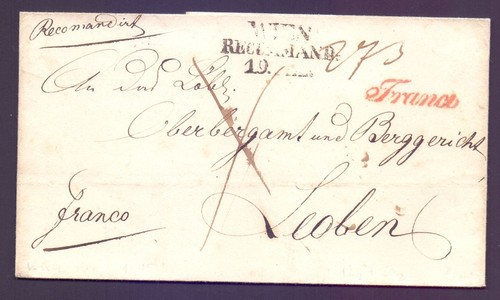 Recomandirt
WIEN
RECOMMAND.
19.
273
Franco
An das Löbl.
Oberbergamt und Berggericht
Franco
Leoben